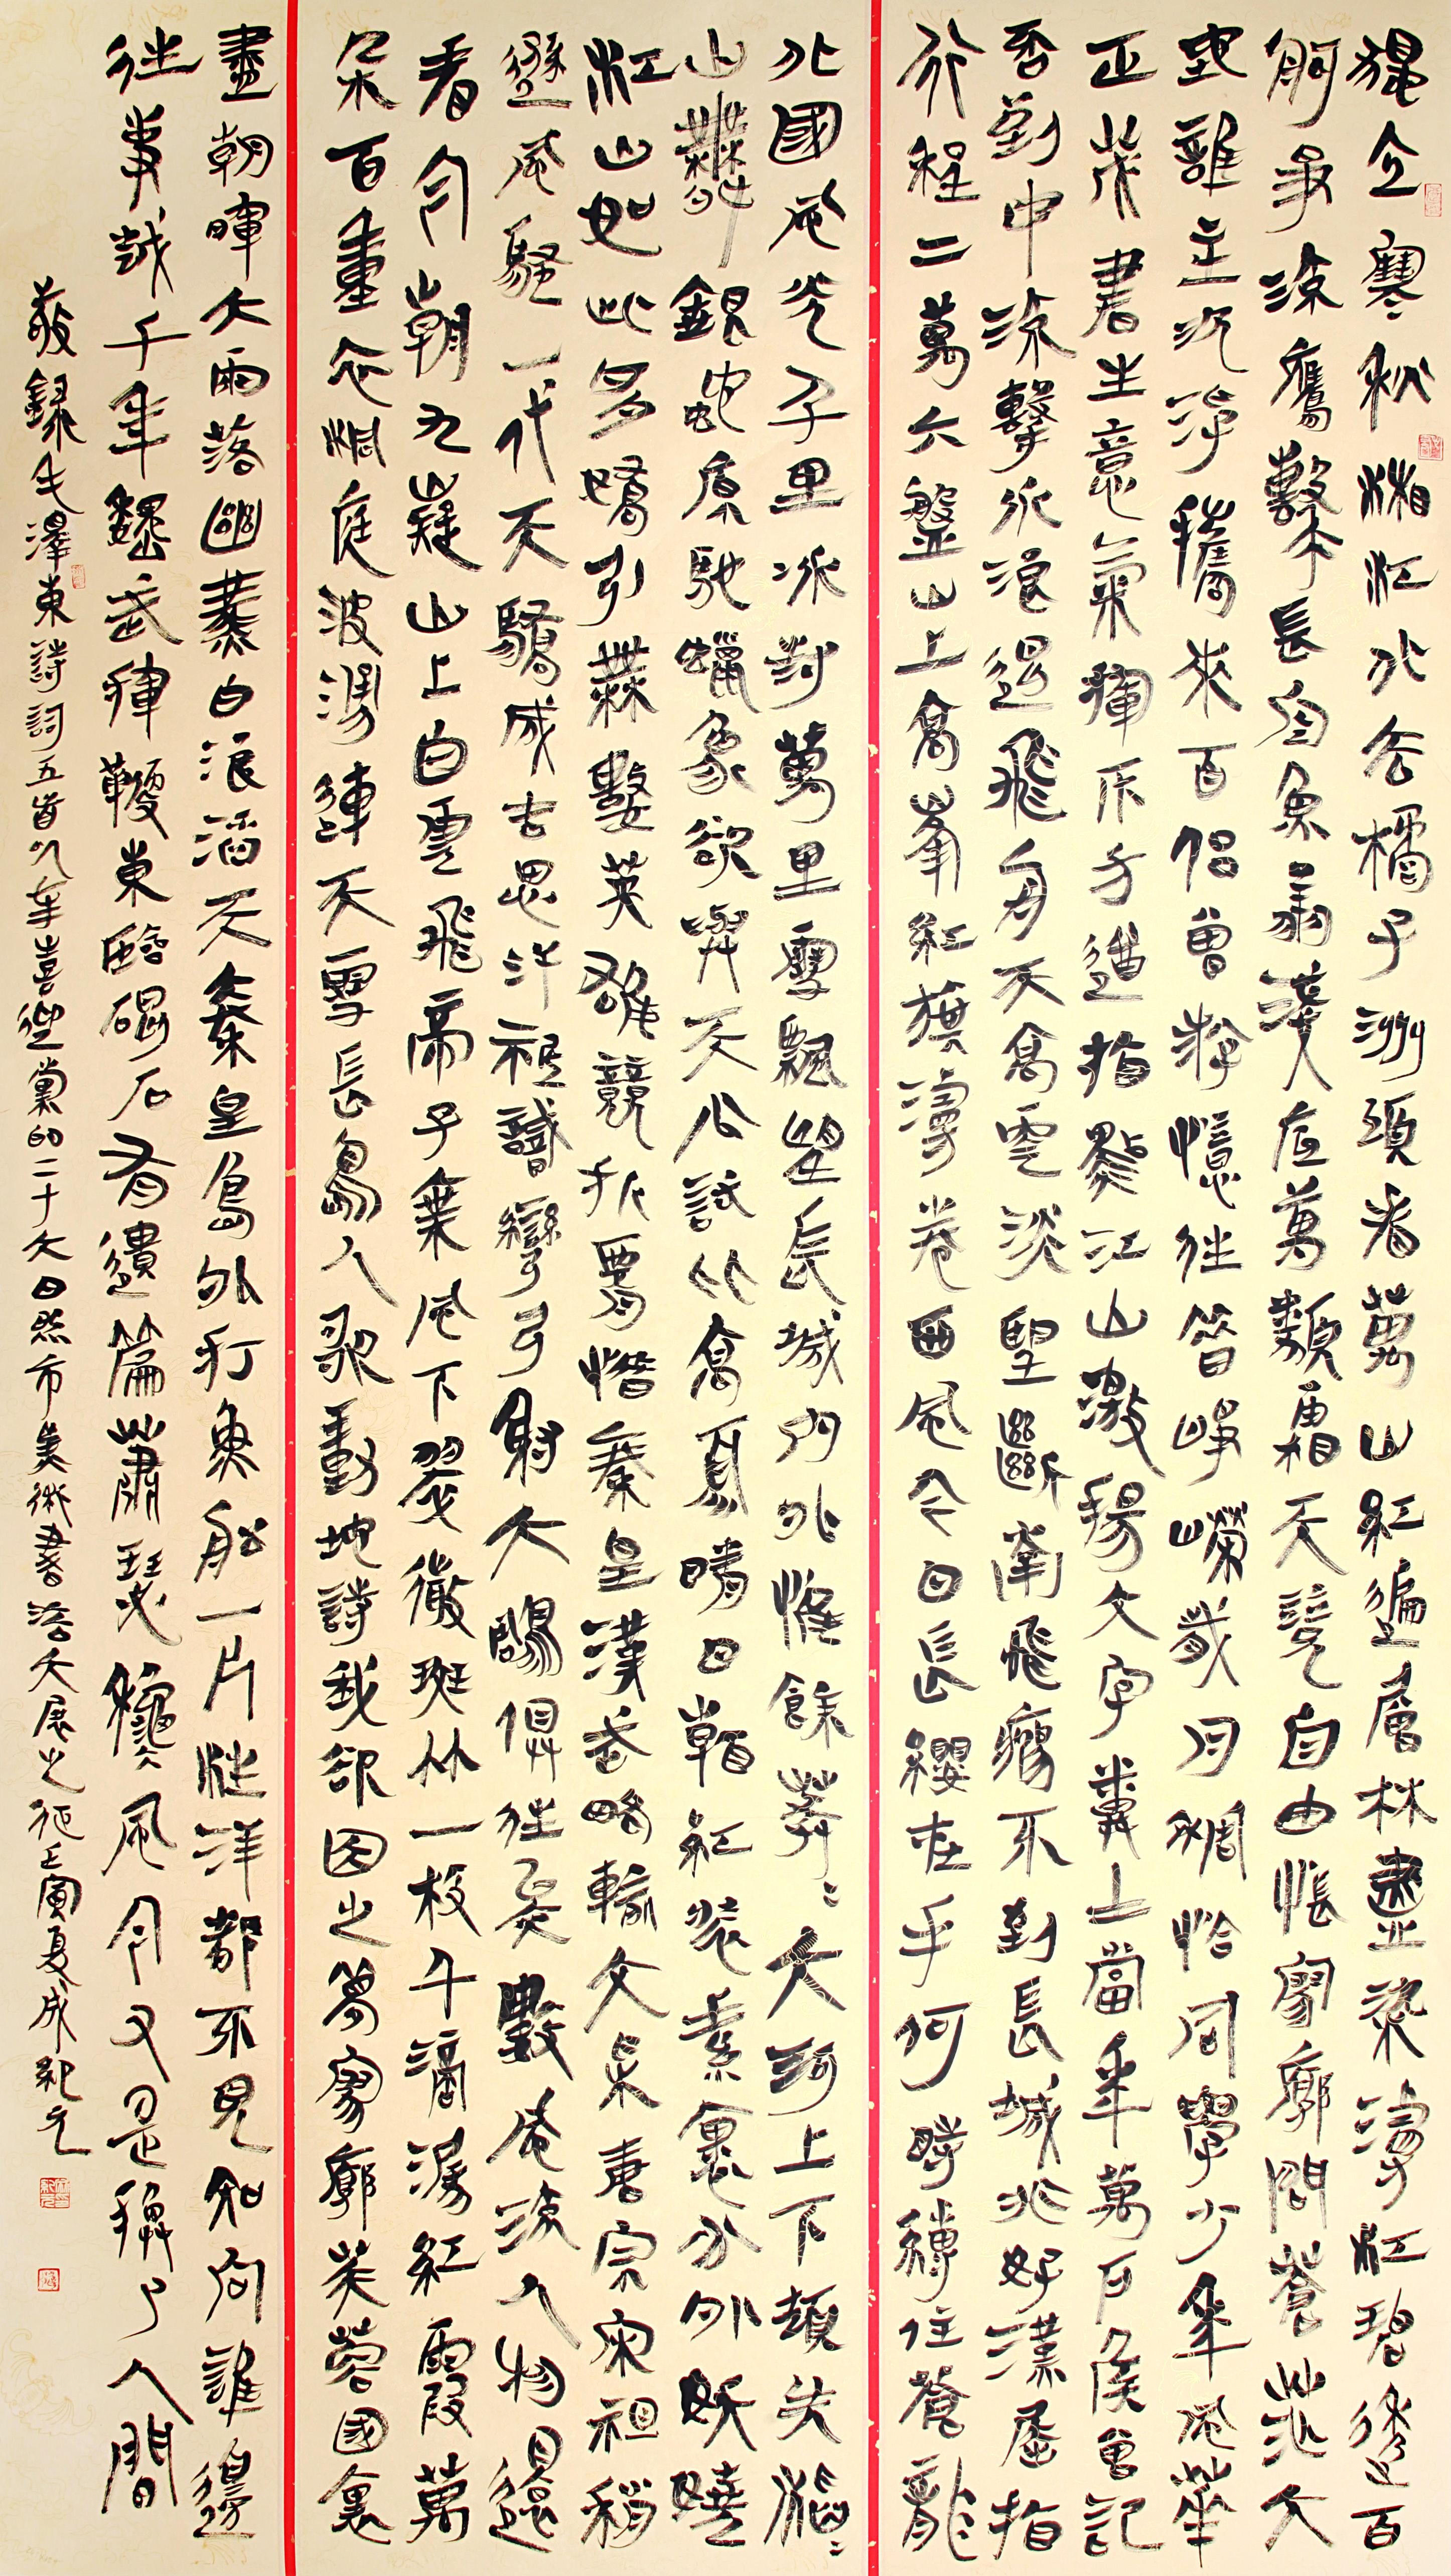 獨立寒秋湘江北去橘子洲頭看萬山紅遍層林盡染漫江碧透百
舸爭流鷹擊長空魚翔淺底萬類霜天競自由悵寥廓問蒼茫大
地誰主沉浮攜來百侣曾游憶往昔崢嶸歲月稠恰同學少年風華
正茂書生意氣揮斥方遒指點江山激揚文字糞土當年萬户侯曾記
否到中流擊水浪遏飛舟天高雲淡望斷南飛雁不到長城非好漢屈指
行程二萬六盤山上高峯紅旗漫卷西風今日長纓在手何時縛住蒼龍
北國風光千里冰封萬里雪飄望長城内外惟餘莽〻大河上下頓失滔〻
山舞銀蛇原馳蠟象欲與天公試比高須晴日看紅裝素裹分外妖嬈
江山如此多嬌引無數英雄競折腰惜秦皇漢武略輸文采唐宗宋祖稍
遜風騷一代天驕成吉思汗衹識彎弓射大鵰俱往矣數風流人物還
看今朝九嶷山上白雲飛帝子乘風下翠微斑竹一枝千滴淚紅霞萬
朵百重衣洞庭波涌連天雪長島人歌動地詩我欲因之夢寥廓芙蓉國裏
盡朝暉大雨落幽燕白浪滔天秦皇島外打魚船一片汪洋都不見知向誰邊
往事越千年魏武揮鞭東臨碣石有遺篇蕭瑟秋風今又是換了人間
敬録毛澤東詩詞五首以奉喜迎黨的二十大日照市美術書法大展之征壬寅夏成紀元